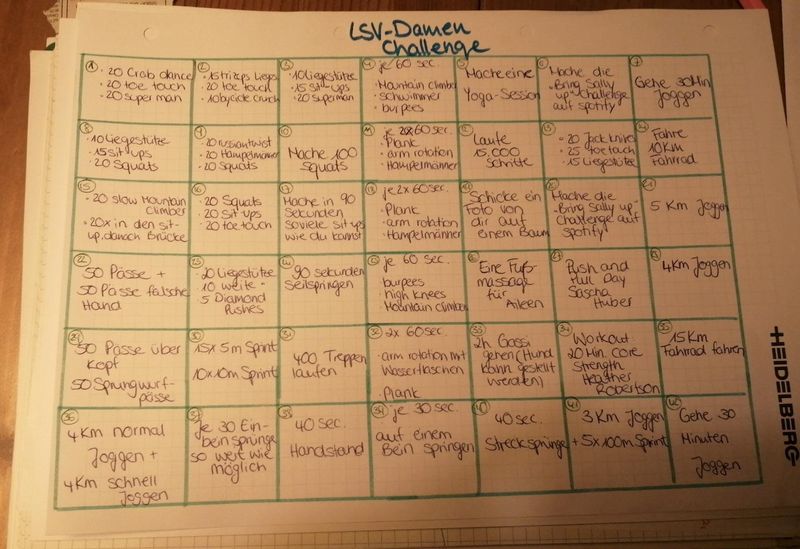 LSV-Damen
Challenge
1
• 20 Crab dance
• 20 toe touch
• 20 superman
2
• 15 trizeps Liegs
• 20 toe touch
• 10 bycicle crunch
3
• 10 Liegestütze
• 15 sit-ups
• 20 superman
4 je 60 sec.
• Mountain climber
• schwimmer
• burpees
5
Mache eine
Yoga-Session
6
Mache die
"Bring Sally
up" Challenge
auf spotify
7
Gehe 30 Min
Joggen
8
10 Liegestütze
15 sit ups
20 Squats
9
• 20 russian twist
• 20 Hampelmänner
• 20 Squats
10
Mache 100
squats
11 je 2x 60 sec.
• Plank
• arm rotation
• Hampelmänner
12
Laufe
15.000
Schritte
13
• 20 Jack knives
• 25 toe touch
• 15 Liegestütze
14
Fahre
10 Km
Fahrrad
15
• 20 slow Mountain
Climber
• 20x in den sit-
up, danach Brücke
16
• 20 Squats
• 20 Sit ups
• 20 toe touch
17
Mache in 90
Sekunden
soviele sit ups
wie du kannst
18 je 2x 60 sec.
• Plank
• arm rotation
• Hampelmänner
19
Schicke ein
Foto von
dir auf
einem Baum
20
Mache die
"Bring Sally up"
Challenge auf
spotify
21
5 Km Joggen
22
50 Pässe +
50 Pässe falsche
Hand
23
• 20 Liegestütze
• 10 weite "
• 5 Diamond
Pushes
24
90 sekunden
Seilspringen
25 je 60 sec.
• burpees
• high knees
• Mountain climber
26
Eine Fuß-
massage
für
Aileen
27
Push and
Pull Day
Sascha
Huber
28
4 Km Joggen
29
50 Pässe über
Kopf
50 Sprungwurf-
pässe
30
15x 5m Sprint
10x10m Sprint
31
400 Treppen
laufen
32 2x 60 sec.
• arm rotation mit
Wasserflaschen
• Plank
33
2h Gassi
gehen (Hund
kann gestellt
werden)
34
Workout
20 Min. core
Strength
Heather
Robertson
35
15 Km
Fahrrad fahren
36
4 Km normal
Joggen +
4 Km schnell
Joggen
37
Je 30 Ein-
beinsprünge
so weit wie
möglich
38
40 sec.
Handstand
39 je 30 sec.
auf einem
Bein springen
40
40 sec.
Strecksprünge
41
3 Km Joggen
+ 5x 100m Sprint
42
Gehe 30
Minuten
Joggen
HEIDELBERG